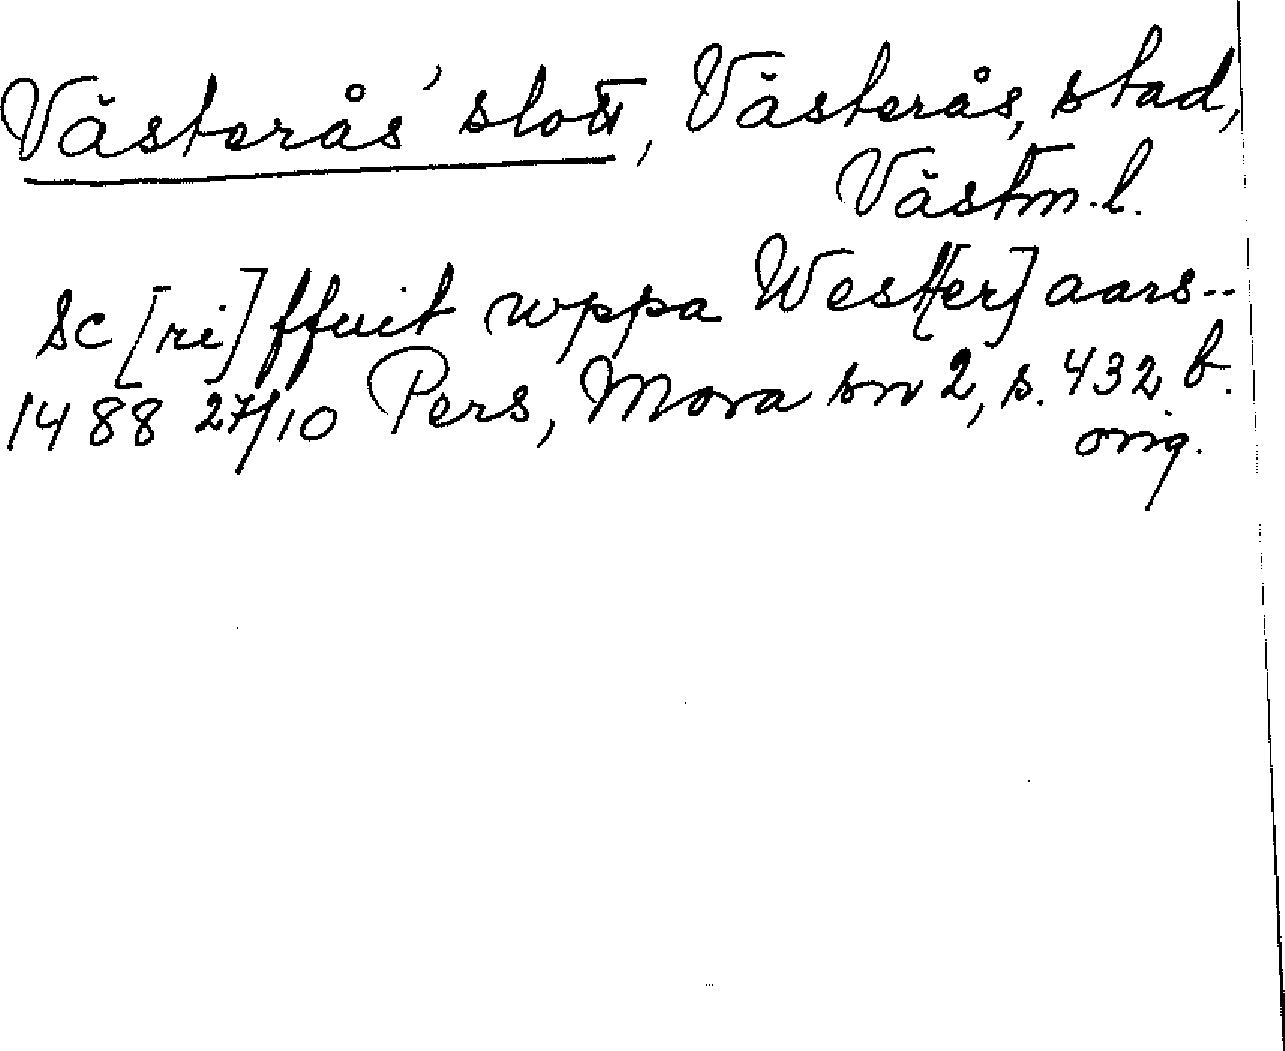 Västerås' slott, Västerås, stad,
Västm.l.
sc[ri]ffuit uppa West[er]aars--
1488 27/10 Pers, Mora sn 2, s. 432 b.
orig.